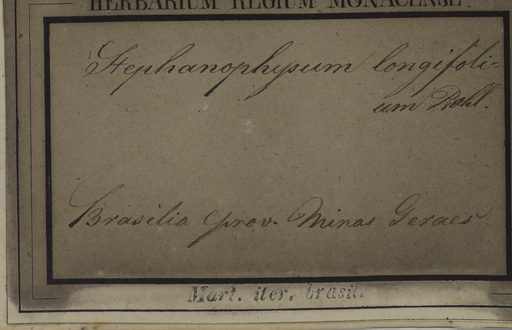 HERBARIUM REGIUM MONACENSE.
Stephanophysum longifoli-
um Pohl.
Brasilia prov. Minas Geraes
Mart. iter. brasil.